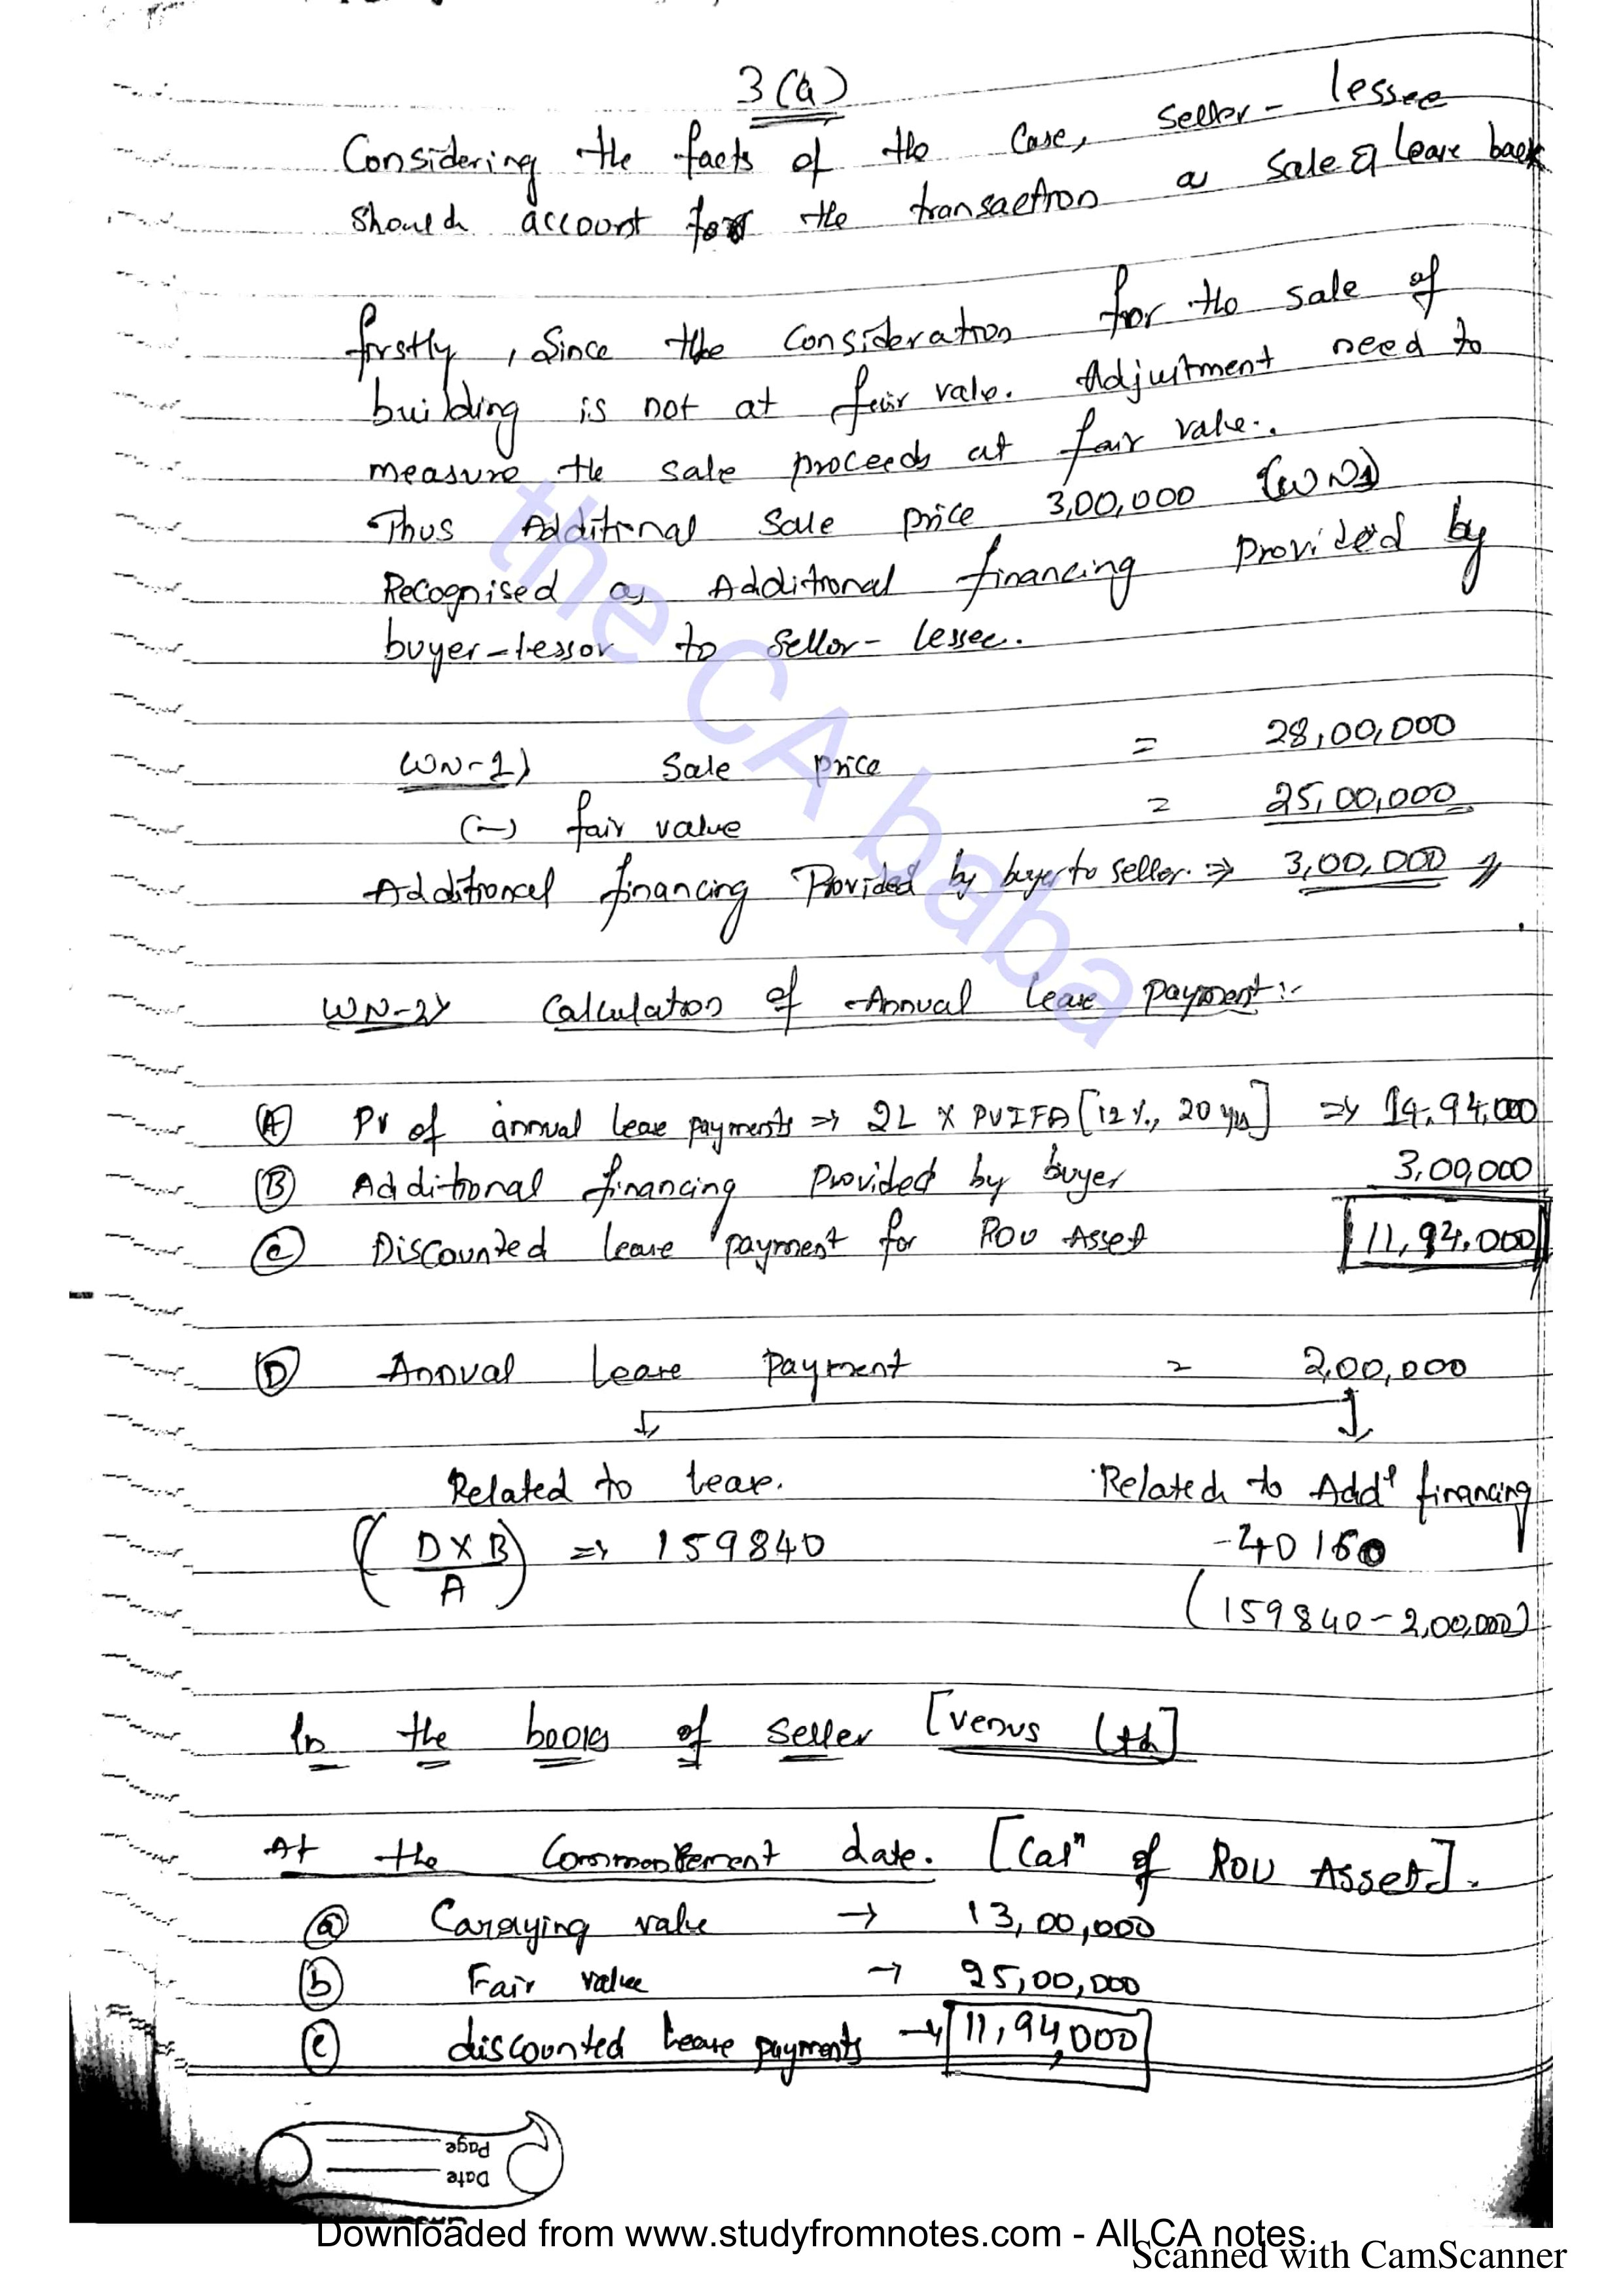 3(a)
Considering the facts of the case, seller-lessee
should account for the transaction as sale & lease back
firstly, Since the consideration for the sale of
building is not at fair value. Adjustment need to
measure the sale proceeds at fair value.
Thus Additional Sale price 3,00,000 (WN1)
Recognised as Additional financing provided by
buyer-lessor to seller-lessee.
WN-1) Sale price = 28,00,000
(-) fair value = 25,00,000
Additional financing Provided by buyer to seller. ⇒ 3,00,000
WN-2) Calculation of Annual lease payment:-
(A) PV of annual lease payments ⇒ 2L X PVIFA [12%, 20 yrs] ⇒ 14,94,000
(B) Additional financing provided by buyer 3,00,000
(C) Discounted lease payment for ROU Asset 11,94,000
(D) Annual lease payment = 2,00,000
Related to lease. Related to Addl financing
(D X B / A) ⇒ 159840 -40160
(159840-2,00,000)
In the books of seller [Venus Ltd]
At the commencement date. [Caln of ROU Asset].
(a) Carrying value → 13,00,000
(b) Fair value → 25,00,000
(c) discounted lease payments → 11,94,000
the CA baba
Page
Date
Downloaded from www.studyfromnotes.com - All CA notes
Scanned with CamScanner